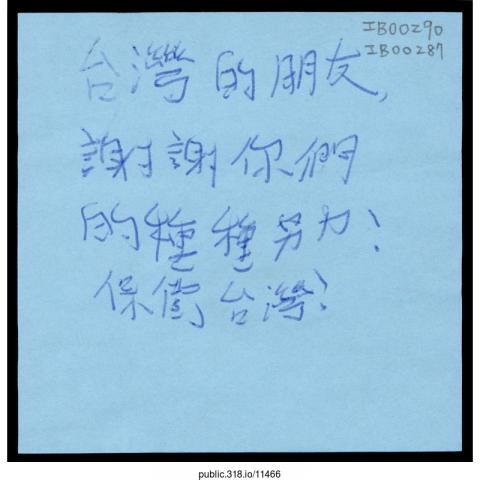 IB00290
IB00287
台灣的朋友,
謝謝你們
的種種努力!
保衛台灣!
public.318.io/11466